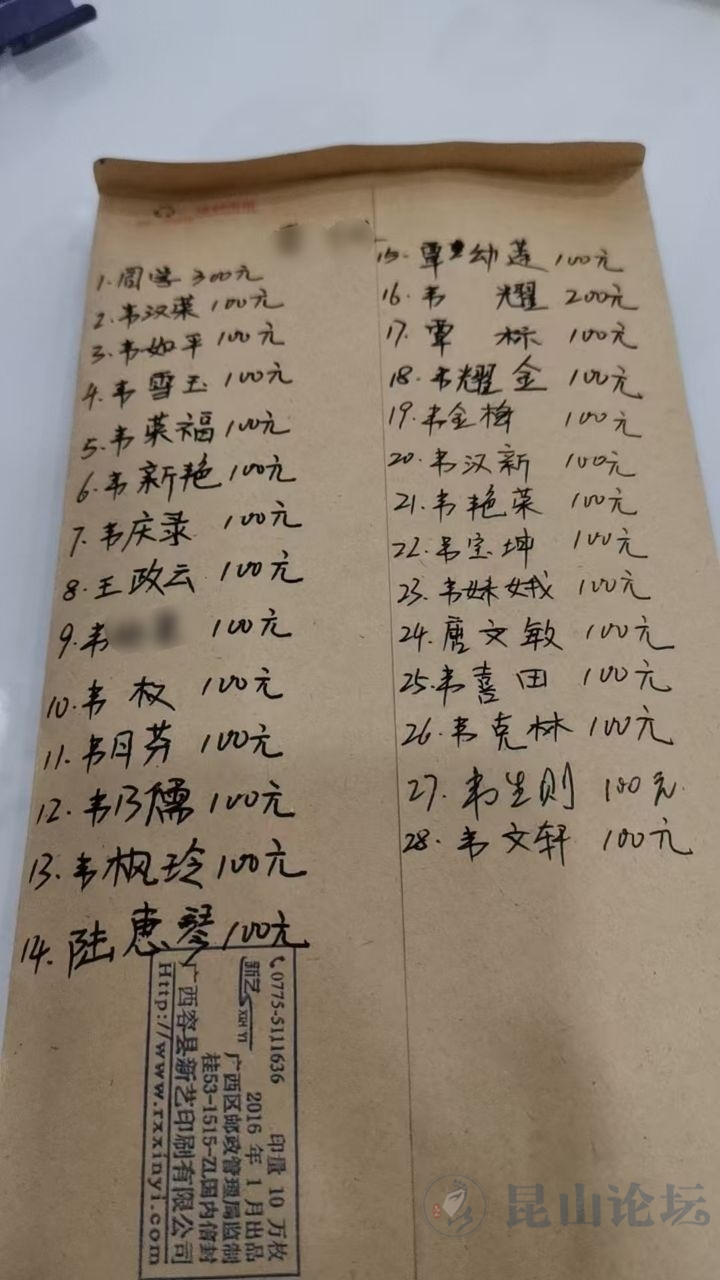 1.周学 300元
2.韦汉菜 100元
3.韦如平 100元
4.韦雪玉 100元
5.韦英福 100元
6.韦新艳 100元
7.韦庆录 100元
8.王政云 100元
9.韦 100元
10.韦权 100元
11.韦月芬 100元
12.韦乃儒 100元
13.韦枫玲 100元
14.陆惠琴 100元
15.覃幼莲 100元
16.韦耀 200元
17.覃标 100元
18.韦耀金 100元
19.韦金梅 100元
20.韦汉新 100元
21.韦艳菜 100元
22.韦宝坤 100元
23.韦妹娥 100元
24.唐文敏 100元
25.韦喜田 100元
26.韦克林 100元
27.韦生则 100元
28.韦文轩 100元
0775-5111636 印量10万枚
新艺 XIN YI 2016年1月出品
广西区邮政管理局监制
桂53-1515-ZL国内信封
广西容县新艺印刷有限公司
Http://www.rxxinyi.com
昆山论坛